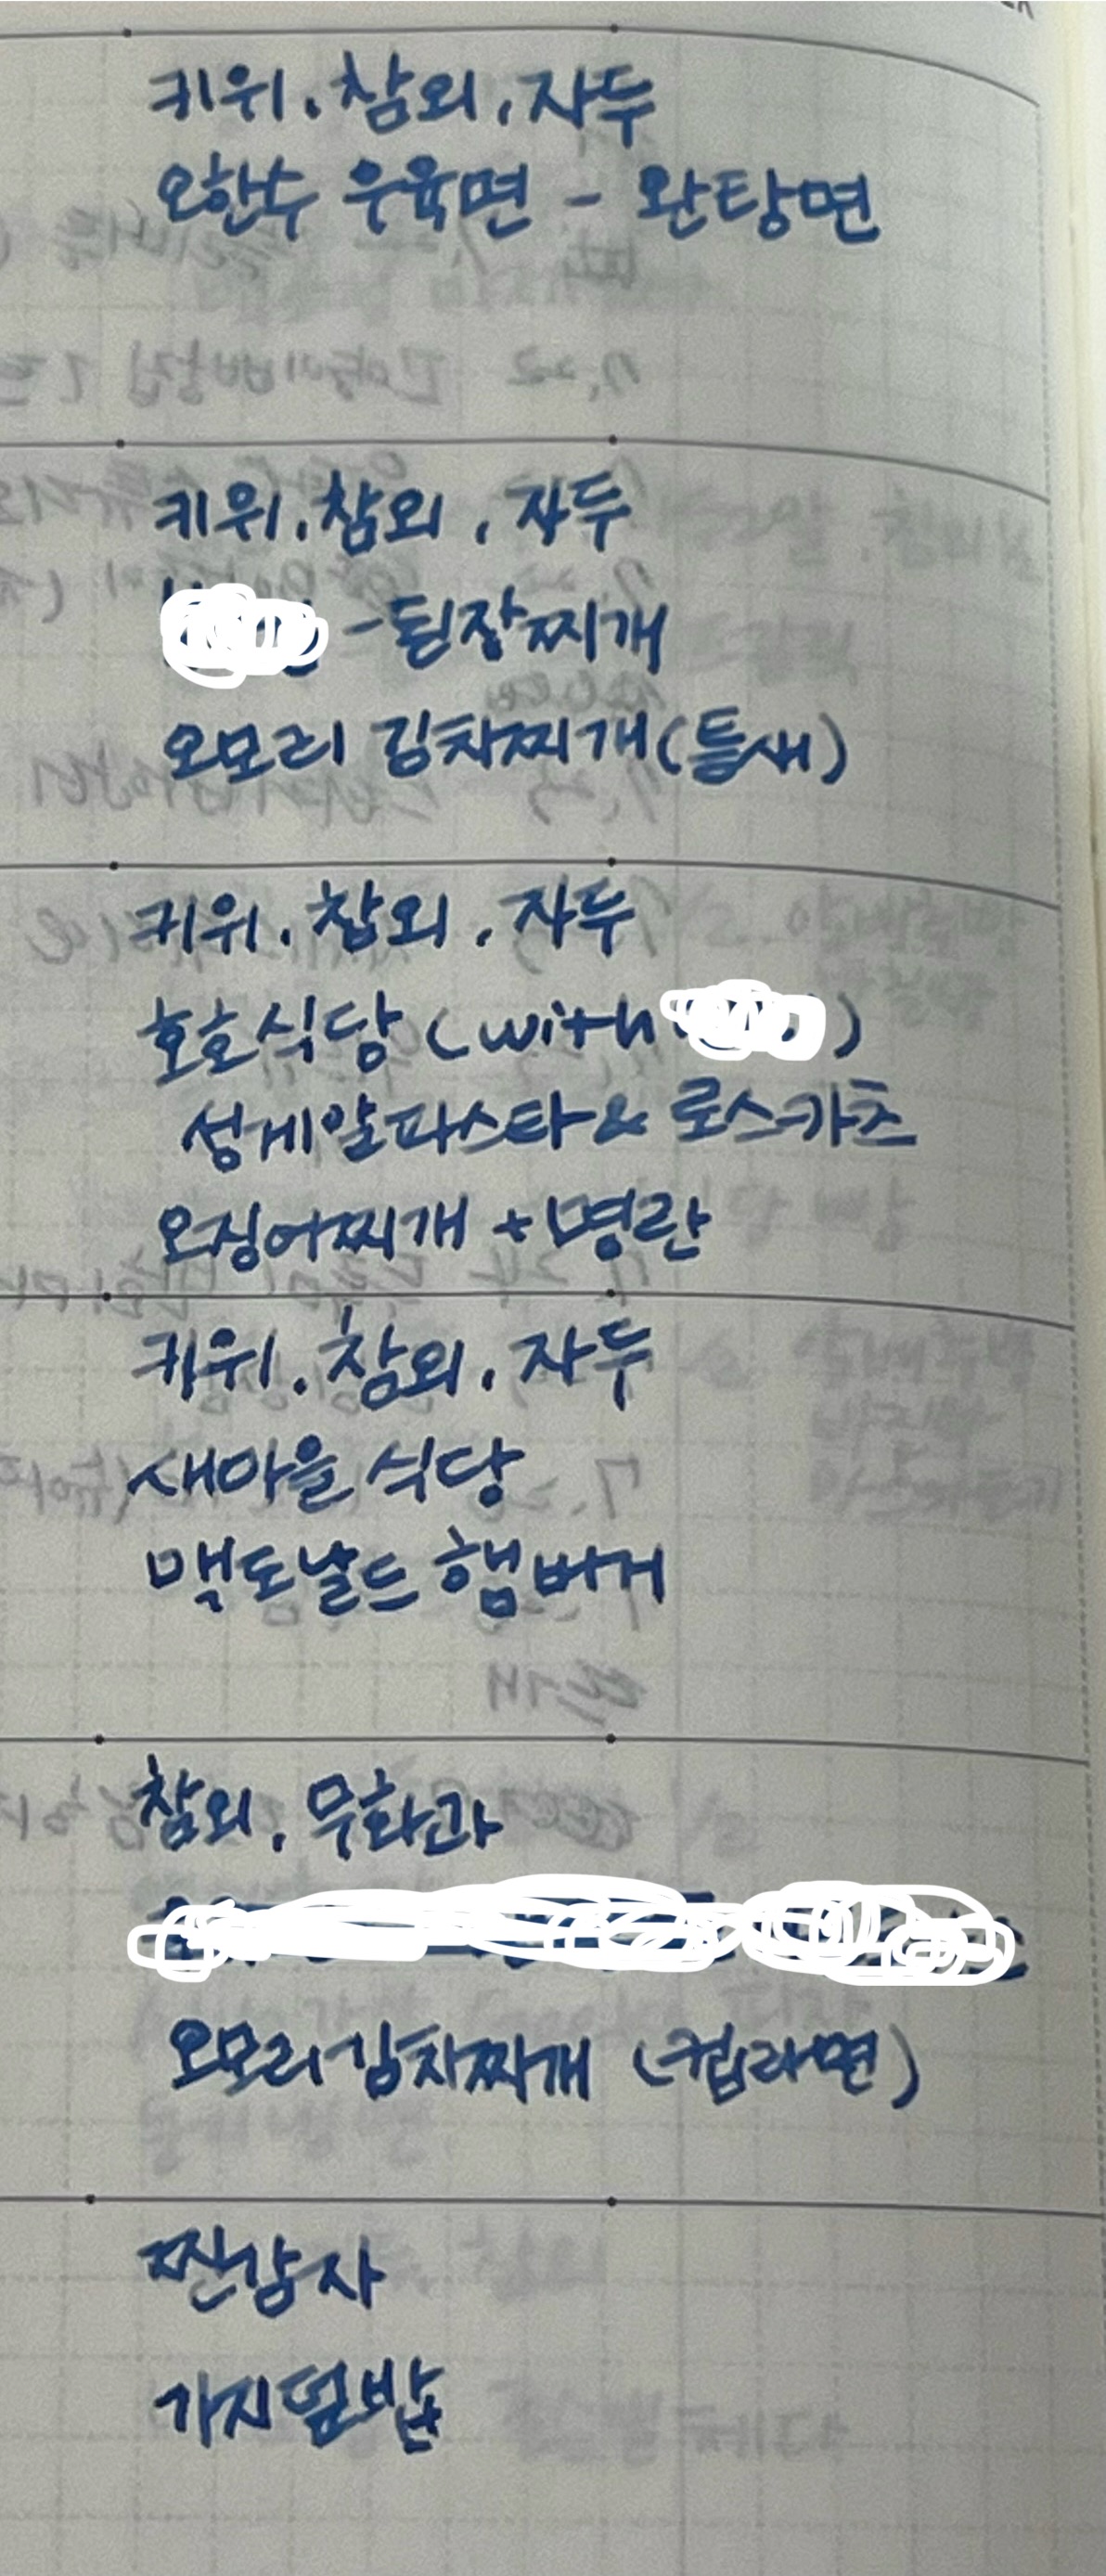 키위, 참외, 자두
오한수 우육면 - 완탕면
키위, 참외, 자두
-된장찌개
오모리 김치찌개 (틈새)
키위, 참외, 자두
호호식당 (with )
성게알파스타 & 로스카츠
오징어찌개 + 명란
키위, 참외, 자두
새마을 식당
맥도날드 햄버거
참외, 무화과
오모리 김치찌개 (컵라면)
찐감자
가지덮밥